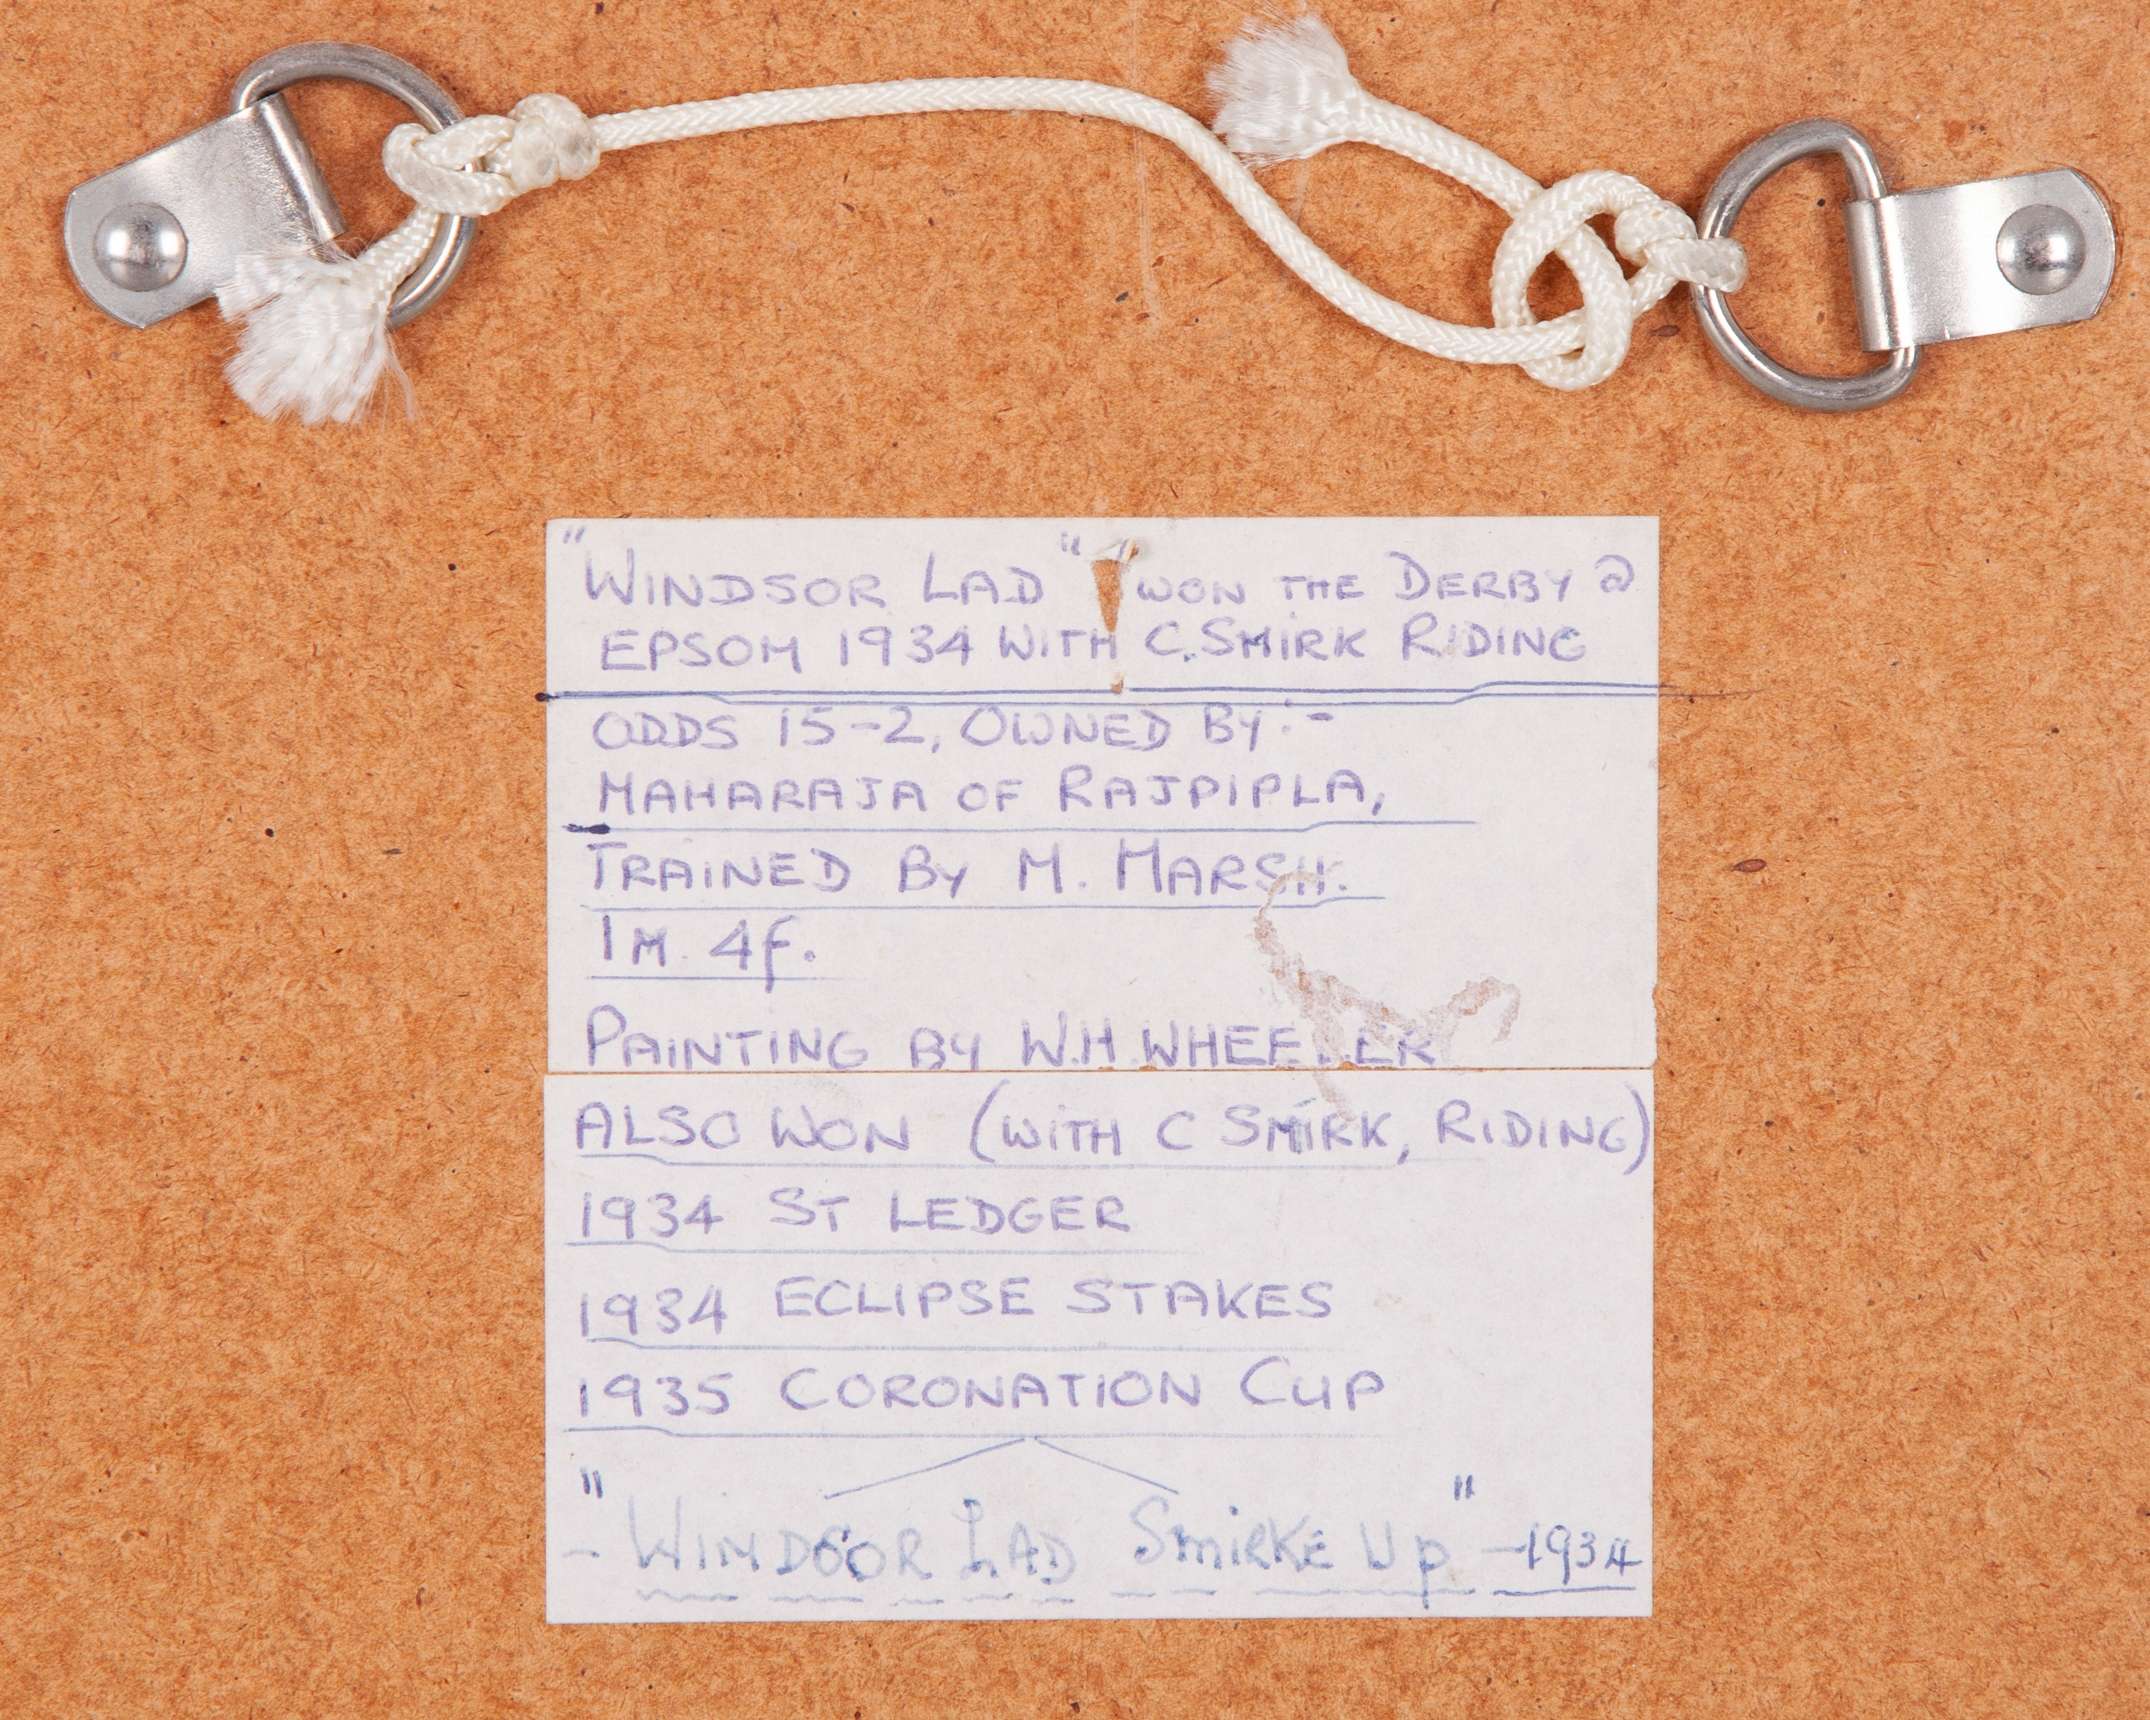 "WINDSOR LAD" WON THE DERBY @
EPSOM 1934 WITH C. SMIRK RIDING
ODDS 15-2, OWNED BY:-
MAHARAJA OF RAJPIPLA,
TRAINED BY M. MARSH.
1M. 4F.
PAINTING BY W.H. WHEELER
ALSO WON (WITH C SMIRK, RIDING)
1934 ST LEDGER
1934 ECLIPSE STAKES
1935 CORONATION CUP
- "WINDSOR LAD SMIRKE UP" - 1934